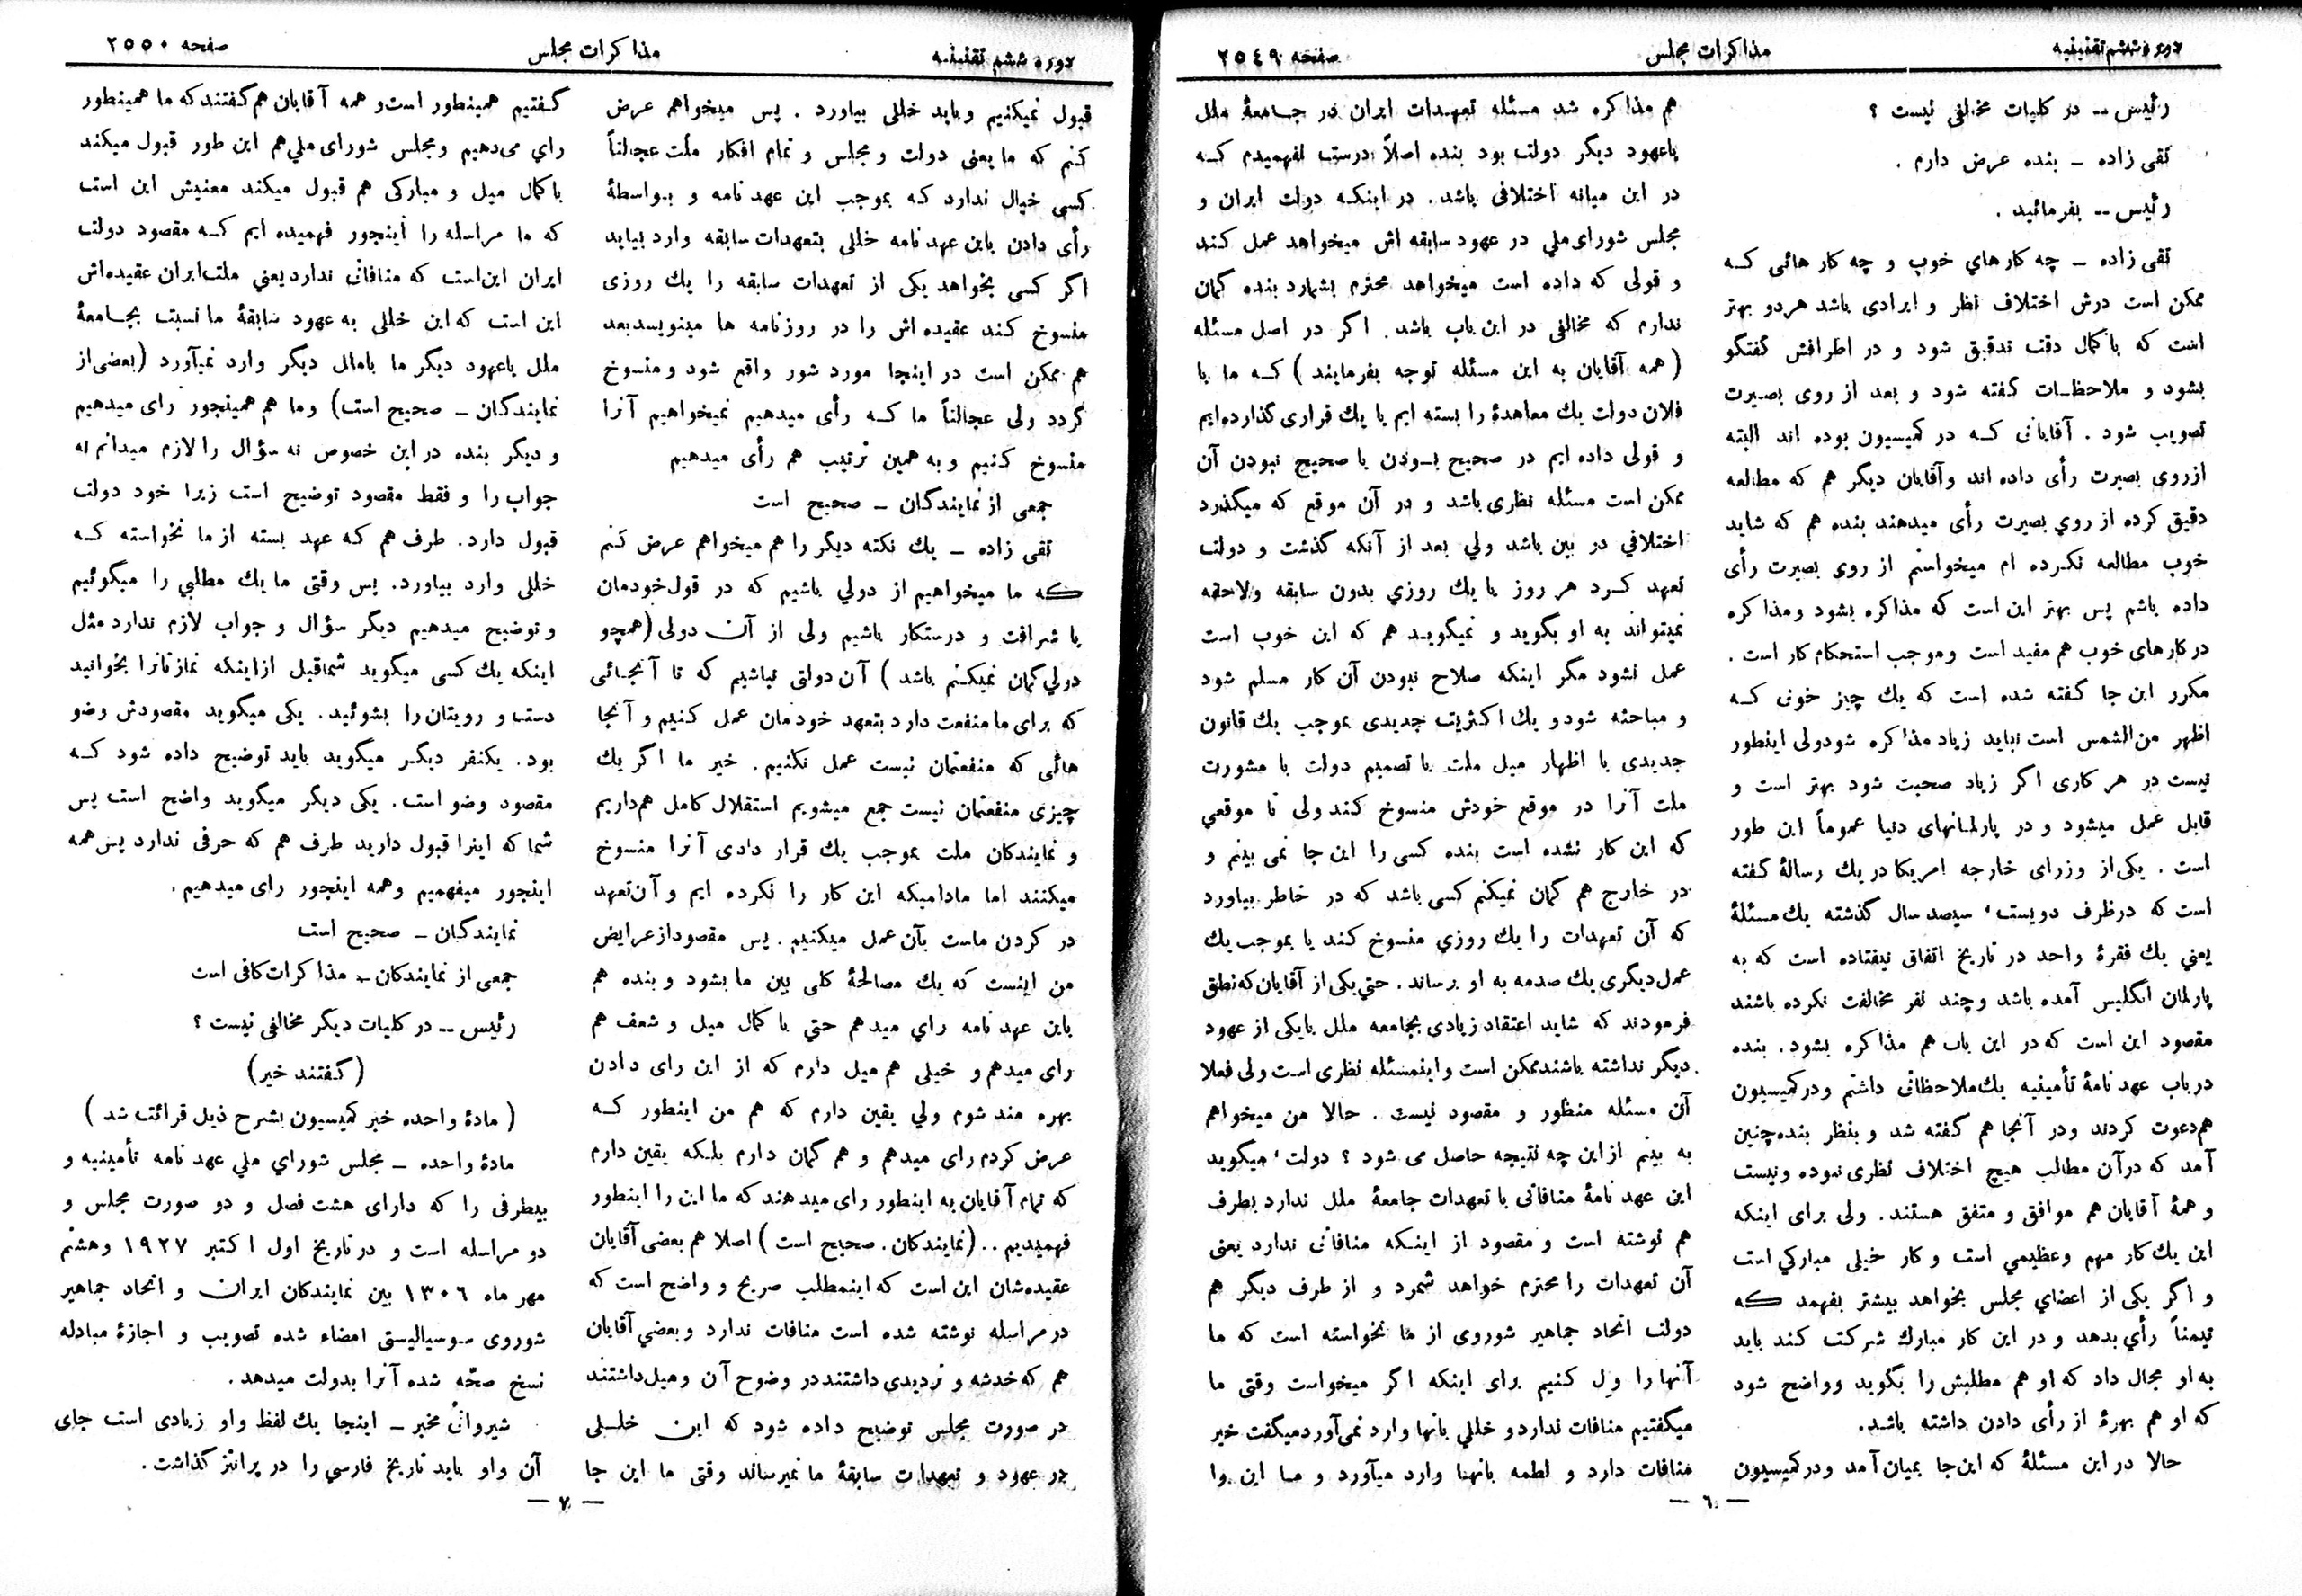 دوره ششم تقنینیه
مذاکرات مجلس
صفحه ٢٥٤٩
رئیس -- در کلیات مخالفی نیست ؟
تقی زاده - بنده عرض دارم .
رئیس -- بفرمائید .
تقی زاده - چه کارهاي خوب و چه کار هائی که
ممکن است درش اختلاف نظر و ایرادی باشد هردو بهتر
است که با کمال دقت تدقیق شود و در اطرافش گفتگو
بشود و ملاحظات گفته شود و بعد از روی بصیرت
تصویب شود . آقایانی که در کمیسیون بوده اند البته
ازروی بصیرت رأی داده اند وآقایان دیگر هم که مطالعه
دقیق کرده از روي بصیرت رأی میدهند بنده هم که شاید
خوب مطالعه نکرده ام میخواستم از روی بصیرت رأی
داده باشم پس بهتر این است که مذاکره بشود ومذاکره
در کارهای خوب هم مفید است وموجب استحکام کار است .
مکرر این جا گفته شده است که یك چیز خوبی که
اظهر من الشمس است نباید زیاد مذاکره شود ولی اینطور
نیست در هر کاری اگر زیاد صحبت شود بهتر است و
قابل عمل میشود و در پارلمانهای دنیا عموماً این طور
است . یکی از وزرای خارجه امریکا در یك رسالۀ گفته
است که درظرف دویست ' سیصد سال گذشته یك مسئلۀ
یعني یك فقرۀ واحد در تاریخ اتفاق نیفتاده است که به
پارلمان انگلیس آمده باشد و چند نفر مخالفت نکرده باشند
مقصود این است که در این باب هم مذاکره بشود . بنده
در باب عهد نامۀ تأمینیه یك ملاحظاتی داشتم ودرکمیسیون
هم دعوت کردند ودر آنجا هم گفته شد و بنظر بنده چنین
آمد که درآن مطالب هیچ اختلاف نظری نبوده ونیست
و همۀ آقایان هم موافق و متفق هستند . ولی برای اینکه
این یك کار مهم وعظیمي است و کار خیلی مبارکي است
و اگر یکی از اعضاي مجلس بخواهد بیشتر بفهمد که
تیمناً رأي بدهد و در این کار مبارك شرکت کند باید
به او مجال داد که او هم مطلبش را بگوید وواضح شود
که او هم بهرۀ از رأی دادن داشته باشد.
حالا در این مسئلۀ که این جا بمیان آمد ودرکمیسیون
هم مذاکره شد مسئله تعهدات ایران در جامعۀ ملل
یاعهود دیگر دولت بود بنده اصلاً درست نفهمیدم که
در این میانه اختلافی باشد . در اینکه دولت ایران و
مجلس شورای ملي در عهود سابقه اش میخواهد عمل کند
و قولی که داده است میخواهد محترم بشمارد بنده گمان
ندارم که مخالفی در این باب باشد . اگر در اصل مسئله
( همه آقایان به این مسئله توجه بفرمایند ) که ما با
فلان دولت یك معاهدۀ را بسته ایم یا یك قراری گذارده ایم
و قولی داده ایم در صحیح بودن یا صحیح نبودن آن
ممکن است مسئله نظری باشد و در آن موقع که میگذرد
اختلافي در بین باشد ولي بعد از آنکه گذشت و دولت
تعهد کرد هر روز یا یك روزي بدون سابقه ولاحقه
نمیتواند به او بگوید و نمیگوید هم که این خوب است
عمل نشود مگر اینکه صلاح نبودن آن کار مسلم شود
و مباحثه شود و یك اکثریت جدیدی بموجب یك قانون
جدیدی با اظهار میل ملت با تصمیم دولت با مشورت
ملت آنرا در موقع خودش منسوخ کند ولی تا موقعي
که این کار نشده است بنده کسی را این جا نمی بینم و
در خارج هم گمان نمیکنم کسی باشد که در خاطر بیاورد
که آن تعهدات را یك روزي منسوخ کند یا بموجب یك
عمل دیگری یك صدمه به او برساند . حتي یکی از آقایان که نطق
فرمودند که شاید اعتقاد زیادی بجامعه ملل یایکی از عهود
دیگر نداشته باشند ممکن است و اینمسئله نظری است ولی فعلا
آن مسئله منظور و مقصود نیست . حالا من میخواهم
به بینم از این چه نتیجه حاصل می شود ؟ دولت ' میگوید
این عهد نامۀ منافاتی با تعهدات جامعۀ ملل ندارد بطرف
هم نوشته است و مقصود از اینکه منافاتی ندارد یعنی
آن تعهدات را محترم خواهد شمرد و از طرف دیگر هم
دولت اتحاد جماهیر شوروی از ما نخواسته است که ما
آنها را ول کنیم برای اینکه اگر میخواست وقتی ما
میگفتیم منافات ندارد و خللي بانها وارد نمی آورد میگفت خیر
منافات دارد و لطمه بانها وارد میآورد و ما این را
— ٦ —
دوره ششم تقنینیه
مذاکرات مجلس
صفحه ٢٥٥٠
قبول نمیکنیم وباید خللی بیاورد . پس میخواهم عرض
کنم که ما یعنی دولت و مجلس و تمام افکار ملت عجالتاً
کسی خیال ندارد که بموجب این عهد نامه و بواسطۀ
رأی دادن باین عهد نامه خللی بتعهدات سابقه وارد بیاید
اگر کسی بخواهد یکی از تعهدات سابقه را یك روزی
منسوخ کند عقیده اش را در روزنامه ها مینویسد بعد
هم ممکن است در اینجا مورد شور واقع شود ومنسوخ
گردد ولی عجالتاً ما که رأی میدهیم نمیخواهیم آنرا
منسوخ کنیم و به همین ترتیب هم رأی میدهیم
جمعی از نمایندگان - صحیح است
تقی زاده - یك نکته دیگر را هم میخواهم عرض کنم
که ما میخواهیم از دولي باشیم که در قول خودمان
با شرافت و درستکار باشیم ولی از آن دولی (همچو
دولي گمان نمیکنم باشد ) آن دولتی نباشیم که تا آنجائی
که برای ما منفعت دارد بتعهد خودمان عمل کنیم و آنجا
هائی که منفعتمان نیست عمل نکنیم . خیر ما اگر یك
چیزی منفعتمان نیست جمع میشویم استقلال کامل هم داریم
و نمایندگان ملت بموجب یك قرار دادی آنرا منسوخ
میکنند اما مادامیکه این کار را نکرده ایم و آن تعهد
در گردن ماست بآن عمل میکنیم . پس مقصود از عرایض
من اینست که یك مصالحۀ کلی بین ما بشود و بنده هم
باین عهد نامه راي میدهم حتي با کمال میل و شعف هم
رای میدهم و خیلی هم میل دارم که از این رای دادن
بهره مند شوم ولي یقین دارم که هم من اینطور که
عرض کردم رای میدهم و هم گمان دارم بلکه یقین دارم
که تمام آقایان به اینطور رای میدهند که ما این را اینطور
فهمیدیم . . (نمایندکان . صحیح است ) اصلا هم بعضی آقایان
عقیده شان این است که اینمطلب صریح و واضح است که
در مراسله نوشته شده است منافات ندارد و بعضي آقایان
هم که خدشه و تردیدی داشتند در وضوح آن ومیل داشتند
در صورت مجلس توضیح داده شود که این خللی
در عهود و تعهدات سابقۀ ما نمیرساند وقتی ما این جا
گفتیم همینطور است و همه آقایان هم گفتند که ما همینطور
راي می دهیم ومجلس شورای ملي هم این طور قبول میکند
با کمال میل و مبارکی هم قبول میکند معنیش این است
که ما مراسله را اینجور فهمیده ایم که مقصود دولت
ایران این است که منافاتی ندارد یعني ملت ایران عقیده اش
این است که این خللی به عهود سابقۀ ما نسبت بجامعۀ
ملل یاعهود دیگر ما باملل دیگر وارد نمیآورد (بعضی از
نمایندکان - صحیح است) وما هم همینجور رای میدهیم
و دیگر بنده در این خصوص نه سؤال را لازم میدانم نه
جواب را و فقط مقصود توضیح است زیرا خود دولت
قبول دارد . طرف هم که عهد بسته از ما نخواسته که
خللی وارد بیاورد . پس وقتی ما یك مطلبي را میگوئیم
و توضیح میدهیم دیگر سؤال و جواب لازم ندارد مثل
اینکه یك کسی میگوید شما قبل از اینکه نمازتانرا بخوانید
دست و رویتان را بشوئید . یکی میگوید مقصودش وضو
بود . یکنفر دیگر میگوید باید توضیح داده شود که
مقصود وضو است . یکی دیگر میگوید واضح است پس
شما که اینرا قبول دارید طرف هم که حرفی ندارد پس همه
اینجور میفهمیم وهمه اینجور رای میدهیم .
نمایندکان - صحیح است
جمعی از نمایندکان - مذاکرات کافی است
رئیس -- در کلیات دیگر مخالفی نیست ؟
(گفتند خیر)
( مادۀ واحده خبر کمیسیون بشرح ذیل قرائت شد )
مادۀ واحده - مجلس شوراي ملي عهد نامه تأمینیه و
بیطرفی را که دارای هشت فصل و دو صورت مجلس و
دو مراسله است و در تاریخ اول اکتبر ١٩٢٧ وهشتم
مهر ماه ١٣٠٦ بین نمایندکان ایران و اتحاد جماهیر
شوروی سوسیالیستی امضاء شده تصویب و اجازۀ مبادله
نسخ صحّه شده آنرا بدولت میدهد .
شیروانی مخبر - اینجا یك لفظ واو زیادی است جای
آن واو باید تاریخ فارسي را در پرانتز گذاشت .
— ٧ —